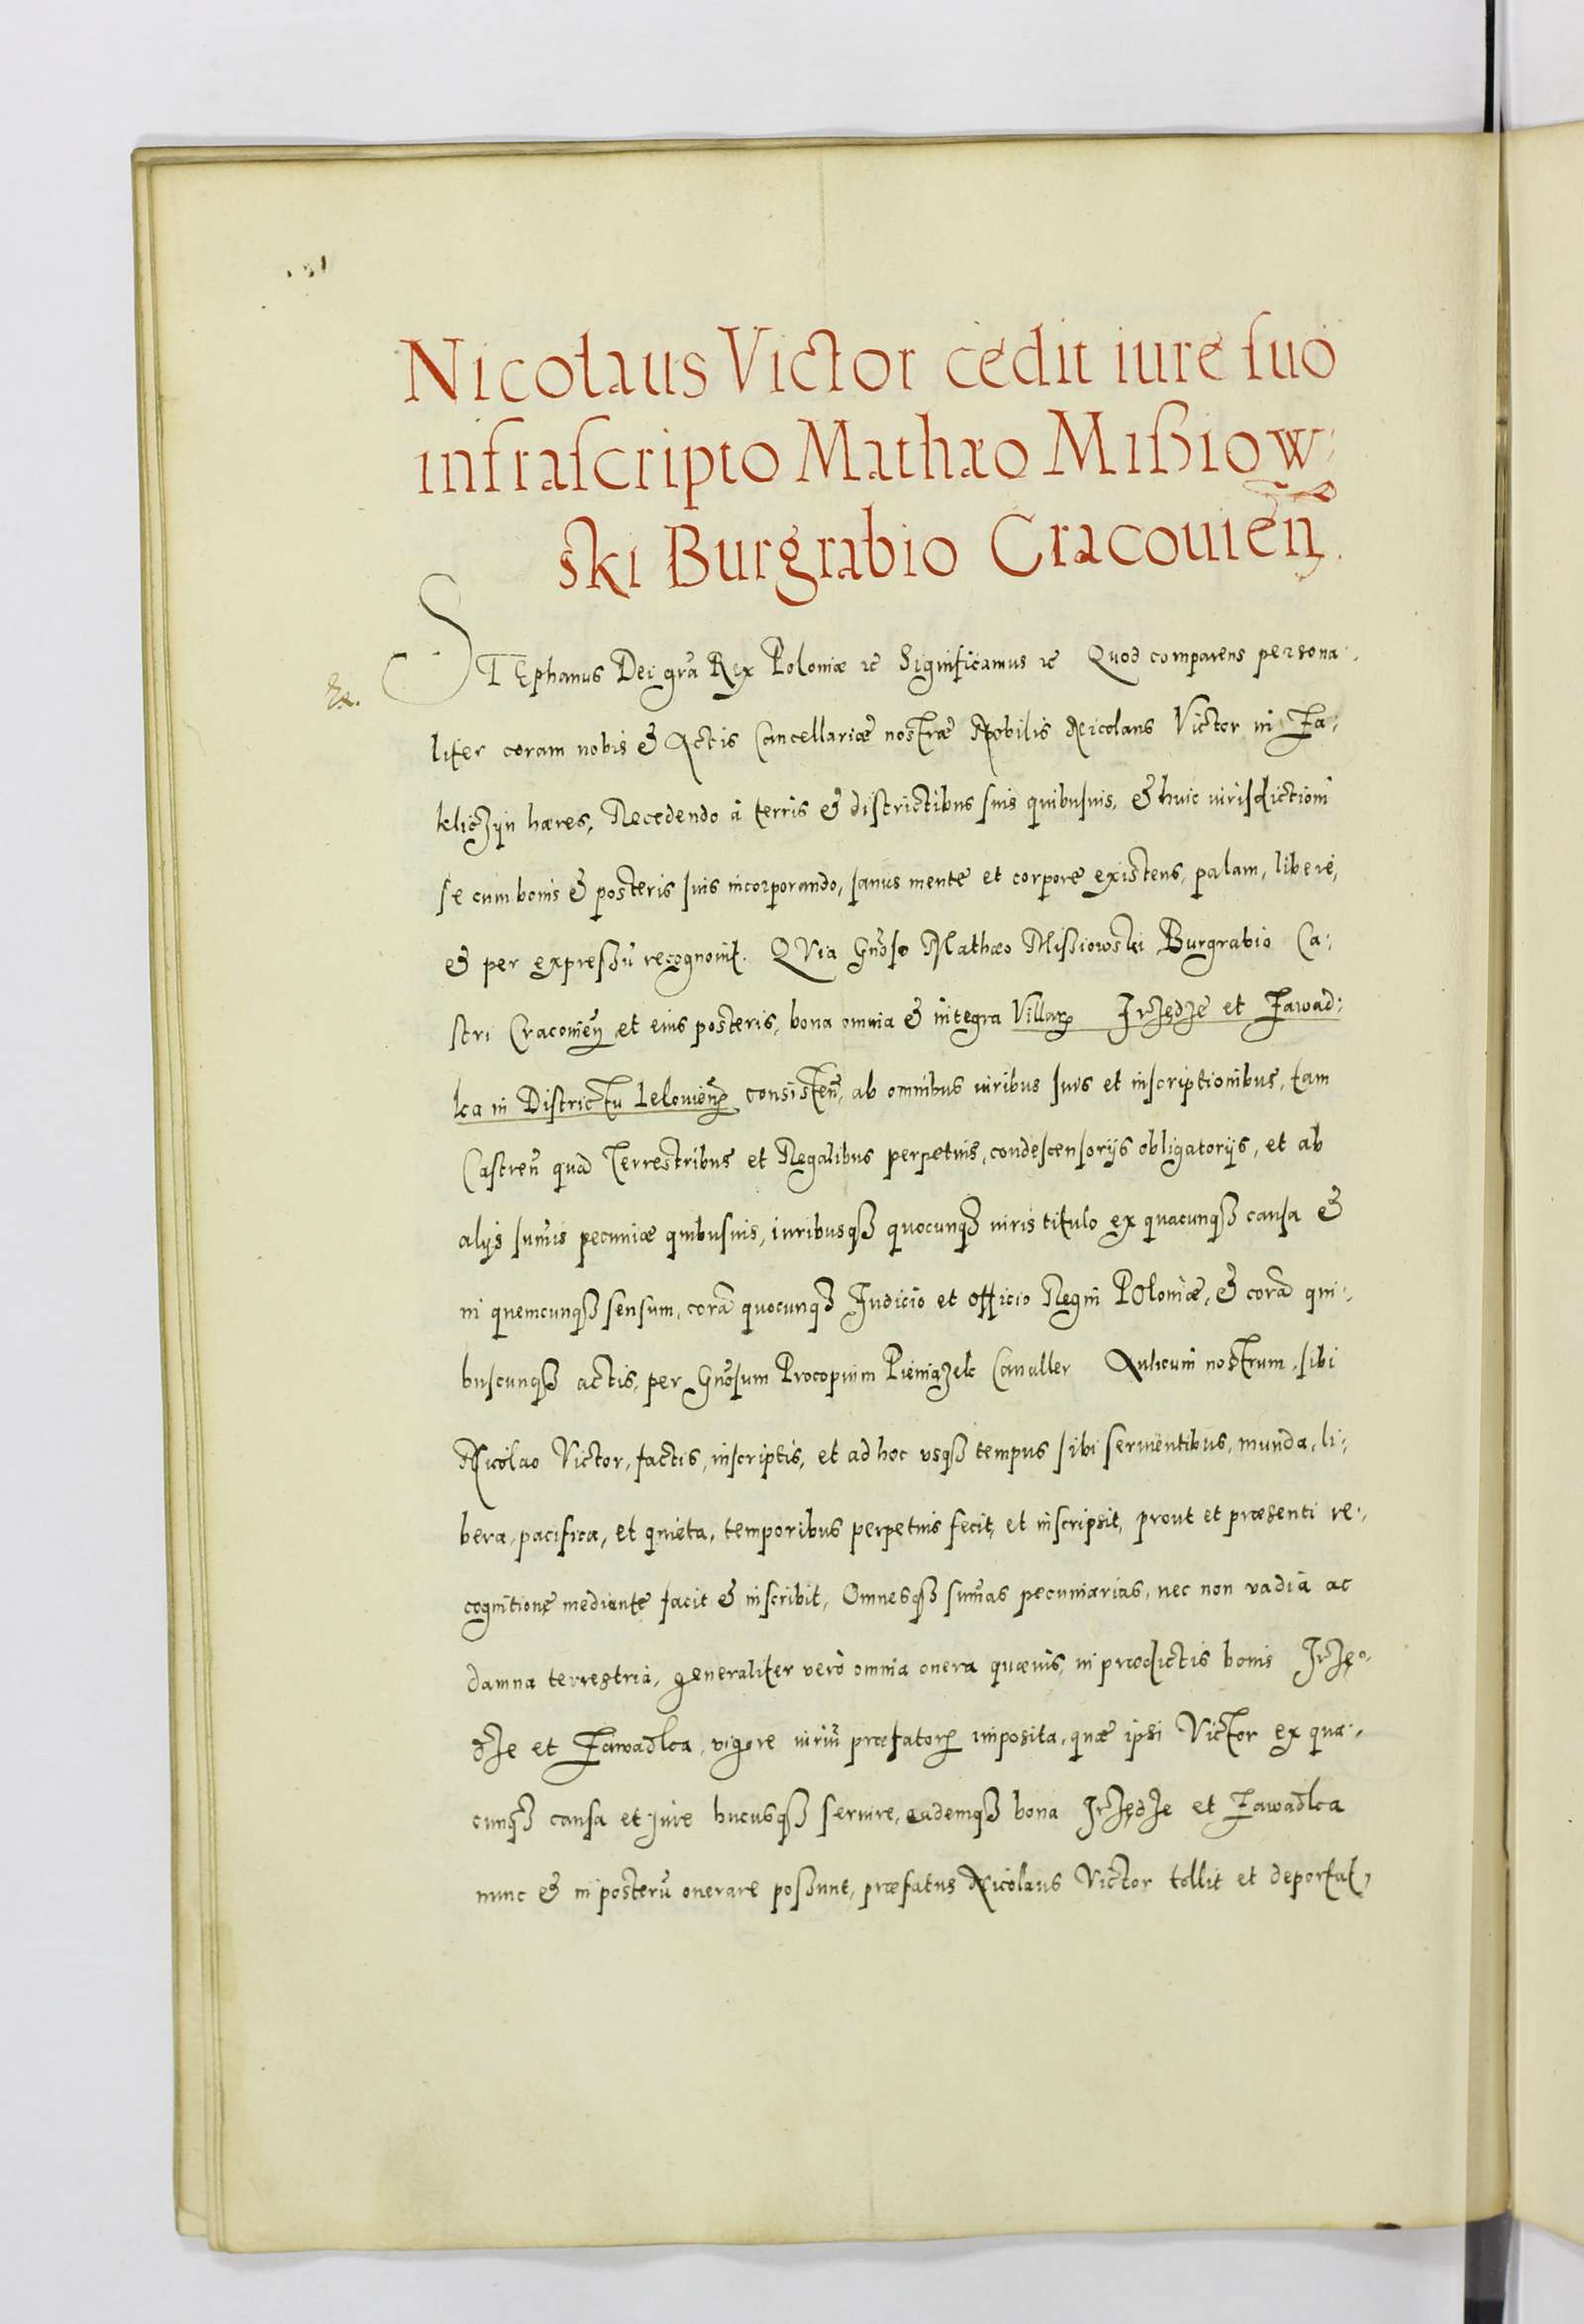 Nicolaus Victor cedit iure suo
infrascripto Mathæo Mißiow-
ski Burgrabio Cracouieñ.
STEphanus Dei gr̃a Rex Poloniæ ꝛc Significamus ꝛc Quod comparens persona-
liter coram nobis & Actis Cancellariæ nostræ Nobilis Nicolaus Victor in Za-
kliczyn hæres, Recedendo à terris & districtibus suis quibusuis, & huic iurisdictioni
se cum bonis & posteris suis incorporando, sanus mente et corpore existens, palam, liberè,
& per expreßũ recognouit. QVia Gñoso Mathæo Mißiowski Burgrabio Ca-
stri Cracouieñ et eius posteris, bona omnia & integra Villarꝝ Irządze et Zawad-
ka in Districtu Lelouieñ consisteñ, ab omnibus iuribus suis et inscriptionibus, tam
Castreñ quã Terrestribus et Regalibus perpetuis, condescensorijs obligatorijs, et ab
alijs sum̃is pecuniæ quibusuis, iuribusqꝫ quocunqꝫ iuris titulo ex quacunqꝫ causa &
in quemcunqꝫ sensum, corã quocunqꝫ Iudicio et officio Regni POloniæ, & corã qui-
buscunqꝫ actis, per Gñosum Procopium Pieniązek Caualler Aulicum nostrum, sibi
Nicolao Victor, factis, inscriptis, et ad hoc vsqꝫ tempus sibi seruientibus, munda, li-
bera, pacifica, et quieta, temporibus perpetuis fecit, et inscripsit, prout et præsenti re-
cognitione mediante facit & inscribit, Omnesqꝫ sum̃as pecuniarias, nec non vadia ac
damna terrestria, generaliter verò omnia onera quæuis, in prædictis bonis Irzą-
dze et Zawadka, vigore iuriũ præfatorꝝ imposita, quæ ipsi Victor ex qua-
cunqꝫ causa et iure hucusqꝫ seruire, eademqꝫ bona Irządze et Zawadka
nunc & in posterũ onerare poßunt, præfatus Nicolaus Victor tollit et deportat,